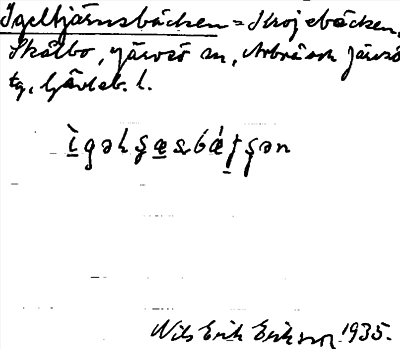 Igeltjärnsbäcken = Skojebäcken,
Skålbo, Järvsö sn, Arbrå och Järvsö
tg, Gävleb. l.
ì̱gəlʂæ̱sbǽt̠ʂən
Nils Erik Eriksson 1935.